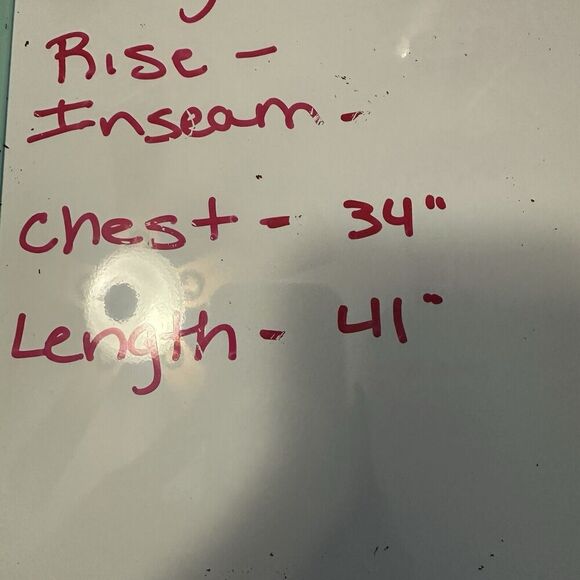 Rise -
Inseam -
Chest - 34"
Length - 41"